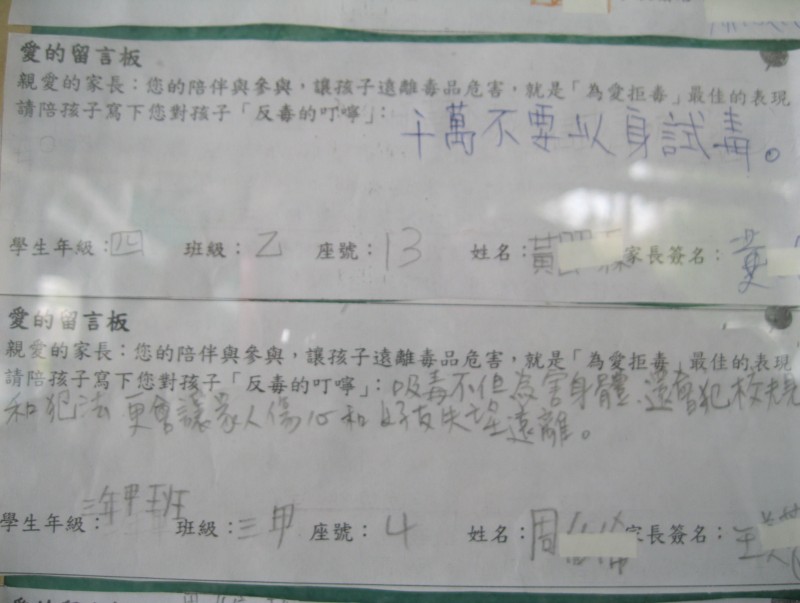 愛的留言板
親愛的家長：您的陪伴與參與，讓孩子遠離毒品危害，就是「為愛拒毒」最佳的表現
請陪孩子寫下您對孩子「反毒的叮嚀」：千萬不要以身試毒。
學生年級：四 班級：乙 座號：13 姓名：黃 家長簽名：黃
愛的留言板
親愛的家長：您的陪伴與參與，讓孩子遠離毒品危害，就是「為愛拒毒」最佳的表現
請陪孩子寫下您對孩子「反毒的叮嚀」：吸毒不但危害身體，還會犯校規
和犯法更會讓家人傷心和好友失望遠離。
學生年級：三年甲班 班級：三甲 座號：4 姓名：周 家長簽名：